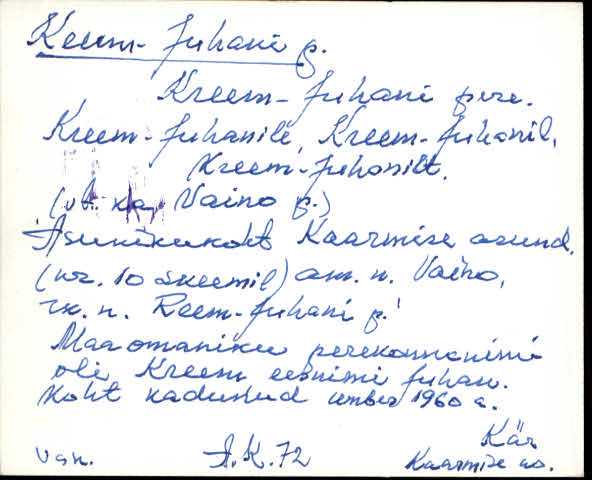 Keem-Juhani p.
Kreem-Juhani pere.
Kreem-Juhanile, Kreem-Juhanil,
Kreem-Juhanilt.
(vt. ka, Vaino p.)
Asunikukoht Kaarmise asund.
(nr. 10 skeemil) am. n. Vaino,
rk. n. Reem-Juhani p.
Maaomaniku perekonnanimi
oli Kreem eesnimi Juhan.
Koht kadunud umbes 1960 a.
Kär
Van. A.K. 72 Kaarmise as.